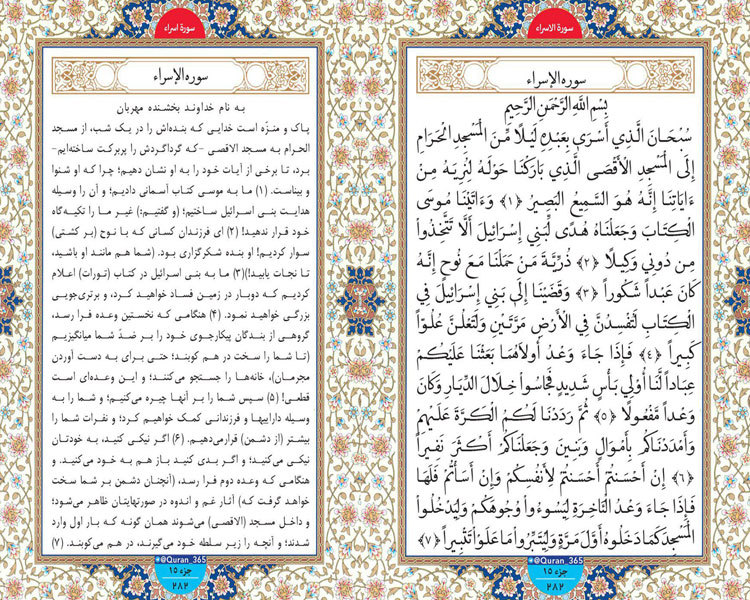 سورة الاسراء
سوره الإسراء
بِسْمِ اللَّهِ الرَّحْمَنِ الرَّحِيمِ
سُبْحَانَ الَّذِي أَسْرَى بِعَبْدِهِ لَيْلًا مِّنَ الْمَسْجِدِ الْحَرَامِ
إِلَى الْمَسْجِدِ الأَقْصَى الَّذِي بَارَكْنَا حَوْلَهُ لِنُرِيَهُ مِنْ
ءَايَاتِنَا إِنَّهُ هُوَ السَّمِيعُ البَصِيرُ ﴿۱﴾ وَءَاتَيْنَا مُوسَى
الْكِتَابَ وَجَعَلْنَاهُ هُدًى لِّبَنِي إِسْرَائِيلَ أَلَّا تَتَّخِذُوا
مِن دُونِي وَكِيلًا ﴿۲﴾ ذُرِّيَّةَ مَنْ حَمَلْنَا مَعَ نُوحٍ إِنَّهُ
كَانَ عَبْداً شَكُوراً ﴿۳﴾ وَقَضَيْنَا إِلَى بَنِي إِسْرَائِيلَ فِي
الْكِتَابِ لَتُفْسِدُنَّ فِي الأَرْضِ مَرَّتَيْنِ وَلَتَعْلُنَّ عُلُوّاً
كَبِيراً ﴿۴﴾ فَإِذَا جَاءَ وَعْدُ أُولَاهُمَا بَعَثْنَا عَلَيْكُمْ
عِبَاداً لَّنَا أُولِي بَأْسٍ شَدِيدٍ فَجَاسُوا خِلَالَ الدِّيَارِ وَكَانَ
وَعْداً مَّفْعُولًا ﴿۵﴾ ثُمَّ رَدَدْنَا لَكُمُ الْكَرَّةَ عَلَيْهِمْ
وَأَمْدَدْنَاكُم بِأَمْوَالٍ وَبَنِينَ وَجَعَلْنَاكُمْ أَكْثَرَ نَفِيراً
﴿۶﴾ إِنْ أَحْسَنتُمْ أَحْسَنتُمْ لِأَنفُسِكُمْ وَإِنْ أَسَأْتُمْ فَلَهَا
فَإِذَا جَاءَ وَعْدُ الْآخِرَةِ لِيَسُوءُوا وُجُوهَكُمْ وَلِيَدْخُلُوا
الْمَسْجِدَ كَمَا دَخَلُوهُ أَوَّلَ مَرَّةٍ وَلِيُتَبِّرُوا مَا عَلَوْا تَتْبِيراً ﴿۷﴾
@Quran_365
جزء ۱۵
۲۸۲
سورة اسراء
سوره الإسراء
به نام خداوند بخشنده مهربان
پاک و منزّه است خدایی که بنده‌اش را در یک شب، از مسجد
الحرام به مسجد الاقصی -که گرداگردش را پربرکت ساخته‌ایم-
برد، تا برخی از آیات خود را به او نشان دهیم؛ چرا که او شنوا
و بیناست. (۱) ما به موسی کتاب آسمانی دادیم؛ و آن را وسیله
هدایت بنی اسرائیل ساختیم؛ (و گفتیم:) غیر ما را تکیه‌گاه
خود قرار ندهید! (۲) ای فرزندان کسانی که با نوح (بر کشتی)
سوار کردیم! او بنده شکرگزاری بود. (شما هم مانند او باشید،
تا نجات یابید!)(۳) ما به بنی اسرائیل در کتاب (تورات) اعلام
کردیم که دوبار در زمین فساد خواهید کرد، و برتری‌جویی
بزرگی خواهید نمود. (۴) هنگامی که نخستین وعده فرا رسد،
گروهی از بندگان پیکارجوی خود را بر ضدّ شما میانگیزیم
(تا شما را سخت در هم کوبند؛ حتی برای به دست آوردن
مجرمان)، خانه‌ها را جستجو می‌کنند؛ و این وعده‌ای است
قطعی! (۵) سپس شما را بر آنها چیره می‌کنیم؛ و شما را به
وسیله داراییها و فرزندانی کمک خواهیم کرد؛ و نفرات شما را
بیشتر (از دشمن) قرارمی‌دهیم. (۶) اگر نیکی کنید، به خودتان
نیکی می‌کنید؛ و اگر بدی کنید باز هم به خود می‌کنید. و
هنگامی که وعده دوم فرا رسد، (آنچنان دشمن بر شما سخت
خواهد گرفت که) آثار غم و اندوه در صورتهایتان ظاهر می‌شود؛
و داخل مسجد (الاقصی) می‌شوند همان گونه که بار اول وارد
شدند؛ و آنچه را زیر سلطه خود می‌گیرند، در هم می‌کوبند. (۷)
@Quran_365
جزء ۱۵
۲۸۲